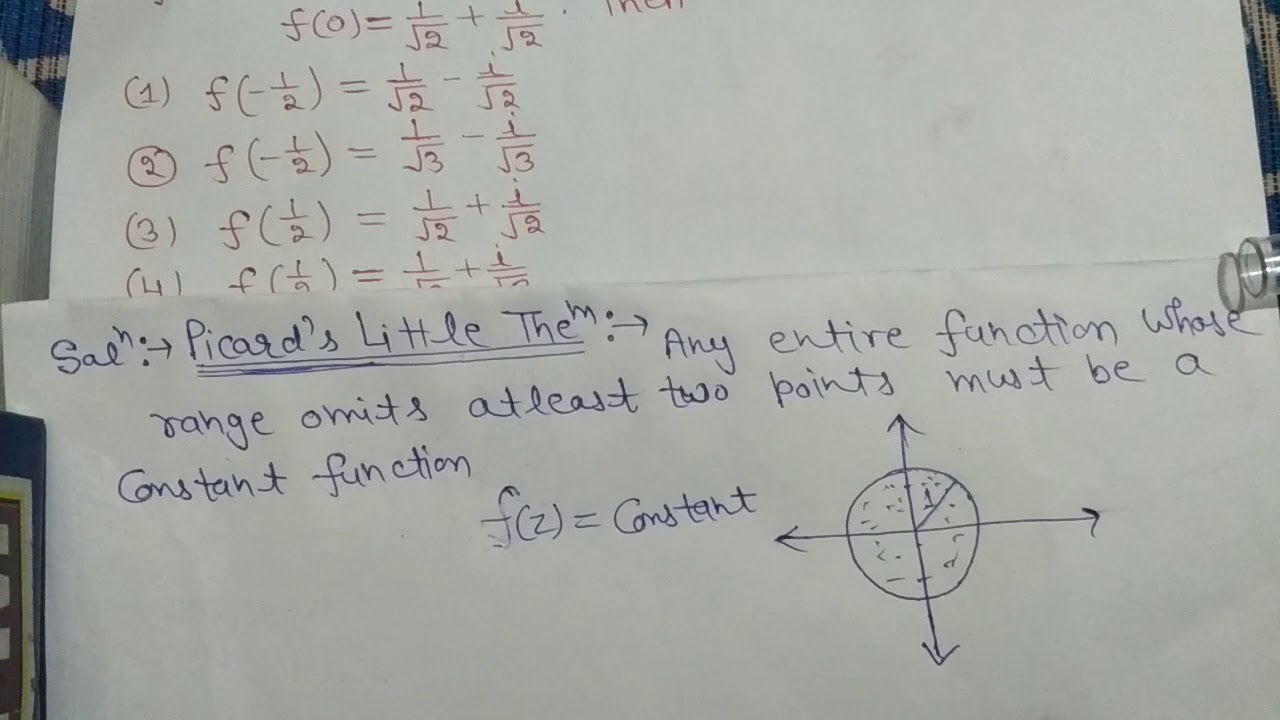 f(0) = 1/√2 + i/√2 . Then
(1) f(-1/2) = 1/√2 - i/√2
(2) f(-1/2) = 1/√3 - i/√3
(3) f(1/2) = 1/√2 + i/√2
(4) f(1/2) = 1/ + i/
Solⁿ:→ Picard's Little Theᵐ:→ Any entire function whose
range omits atleast two points must be a
Constant function
f(z) = Constant
1